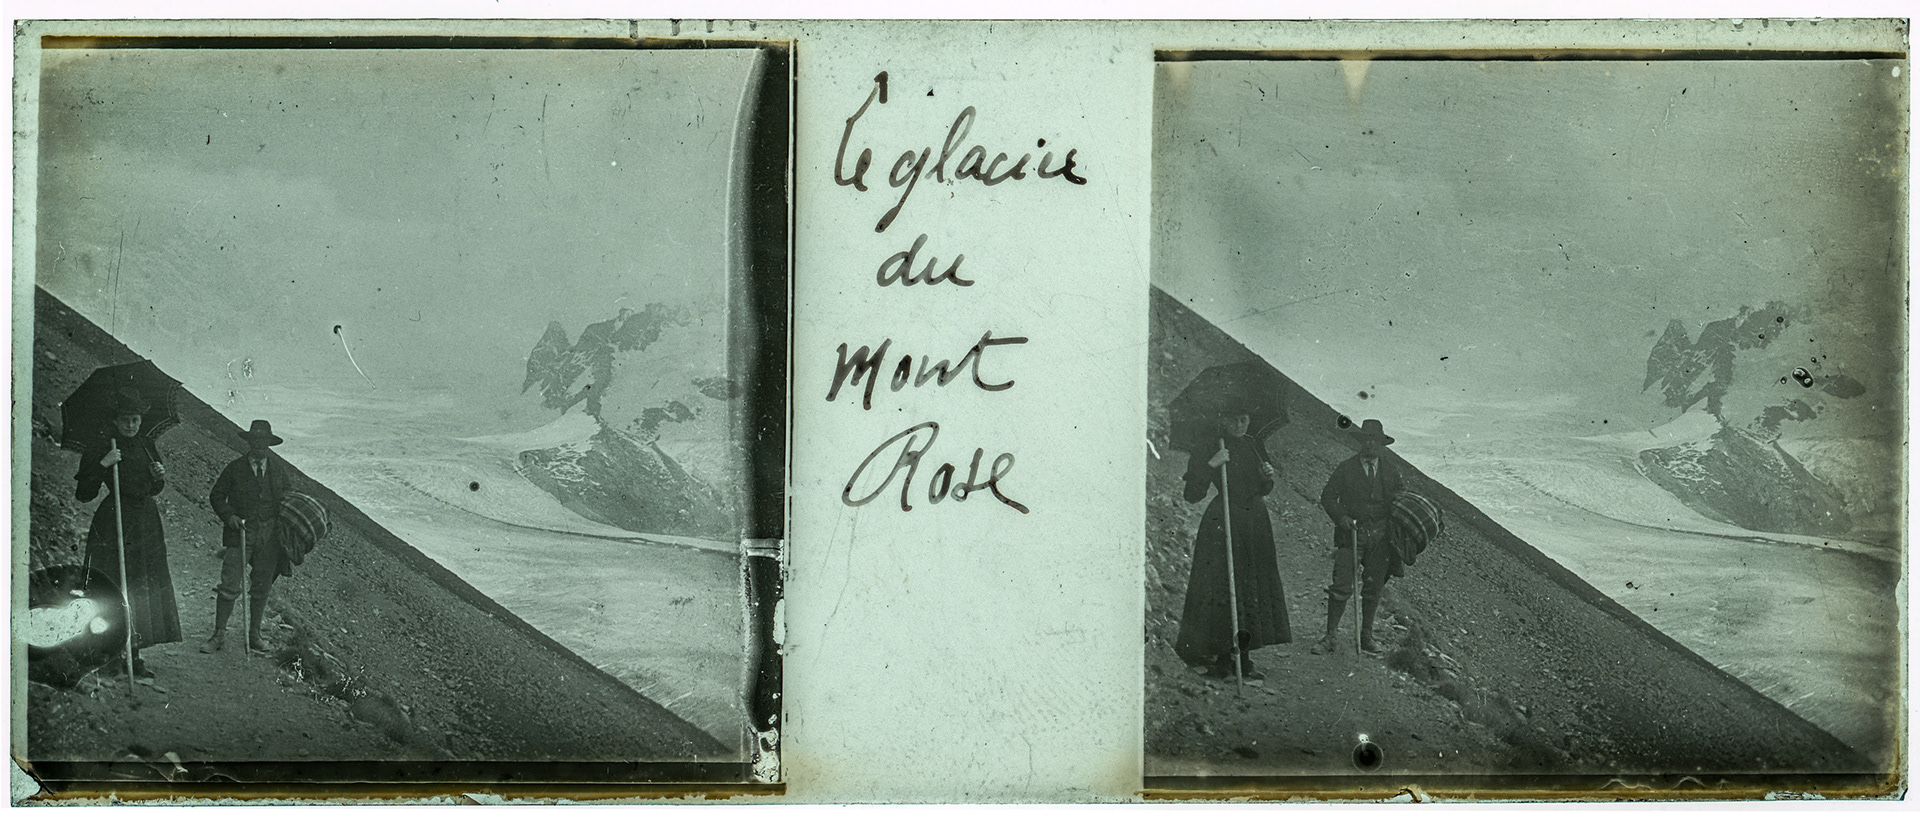 Le glacier
du
Mont
Rose